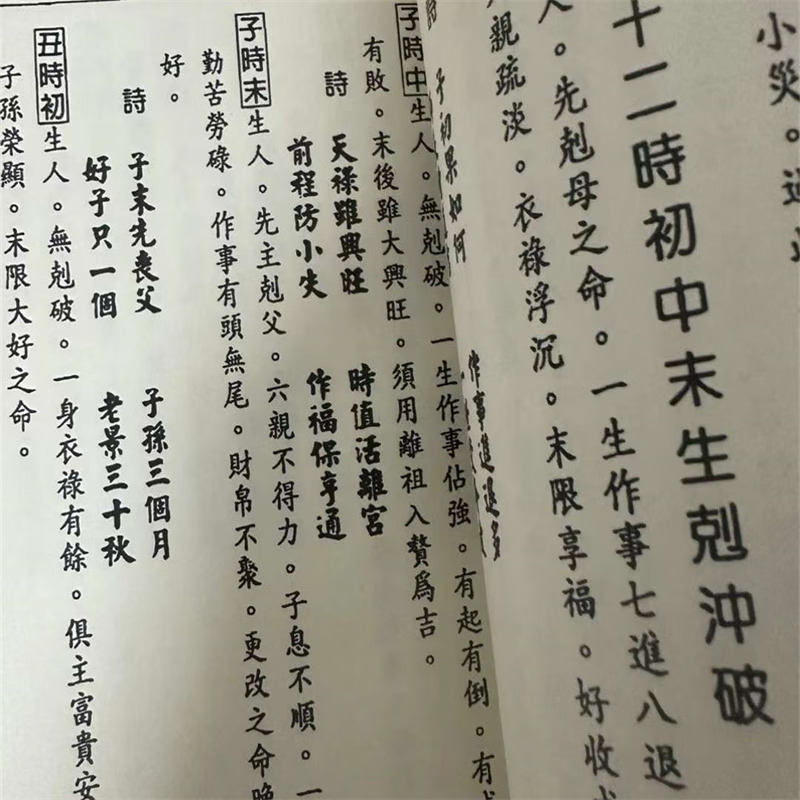 小災。
十二時初中末生剋沖破
人。先剋母之命。一生作事七進八退
親疏淡。衣祿浮沉。末限享福。好收
子初果如何
作事進退多
子時中生人。無剋破。一生作事佔強。有起有倒。有
有敗。末後雖大興旺。須用離祖入贅爲吉。
詩
天祿雖興旺 時值活離宮
前程防小失 作福保亨通
子時末生人。先主剋父。六親不得力。子息不順。一
勤苦勞碌。作事有頭無尾。財帛不聚。更改之命晚
好。
詩
子末先喪父 子孫三個月
好子只一個 老景三十秋
丑時初生人。無剋破。一身衣祿有餘。俱主富貴安
子孫榮顯。末限大好之命。